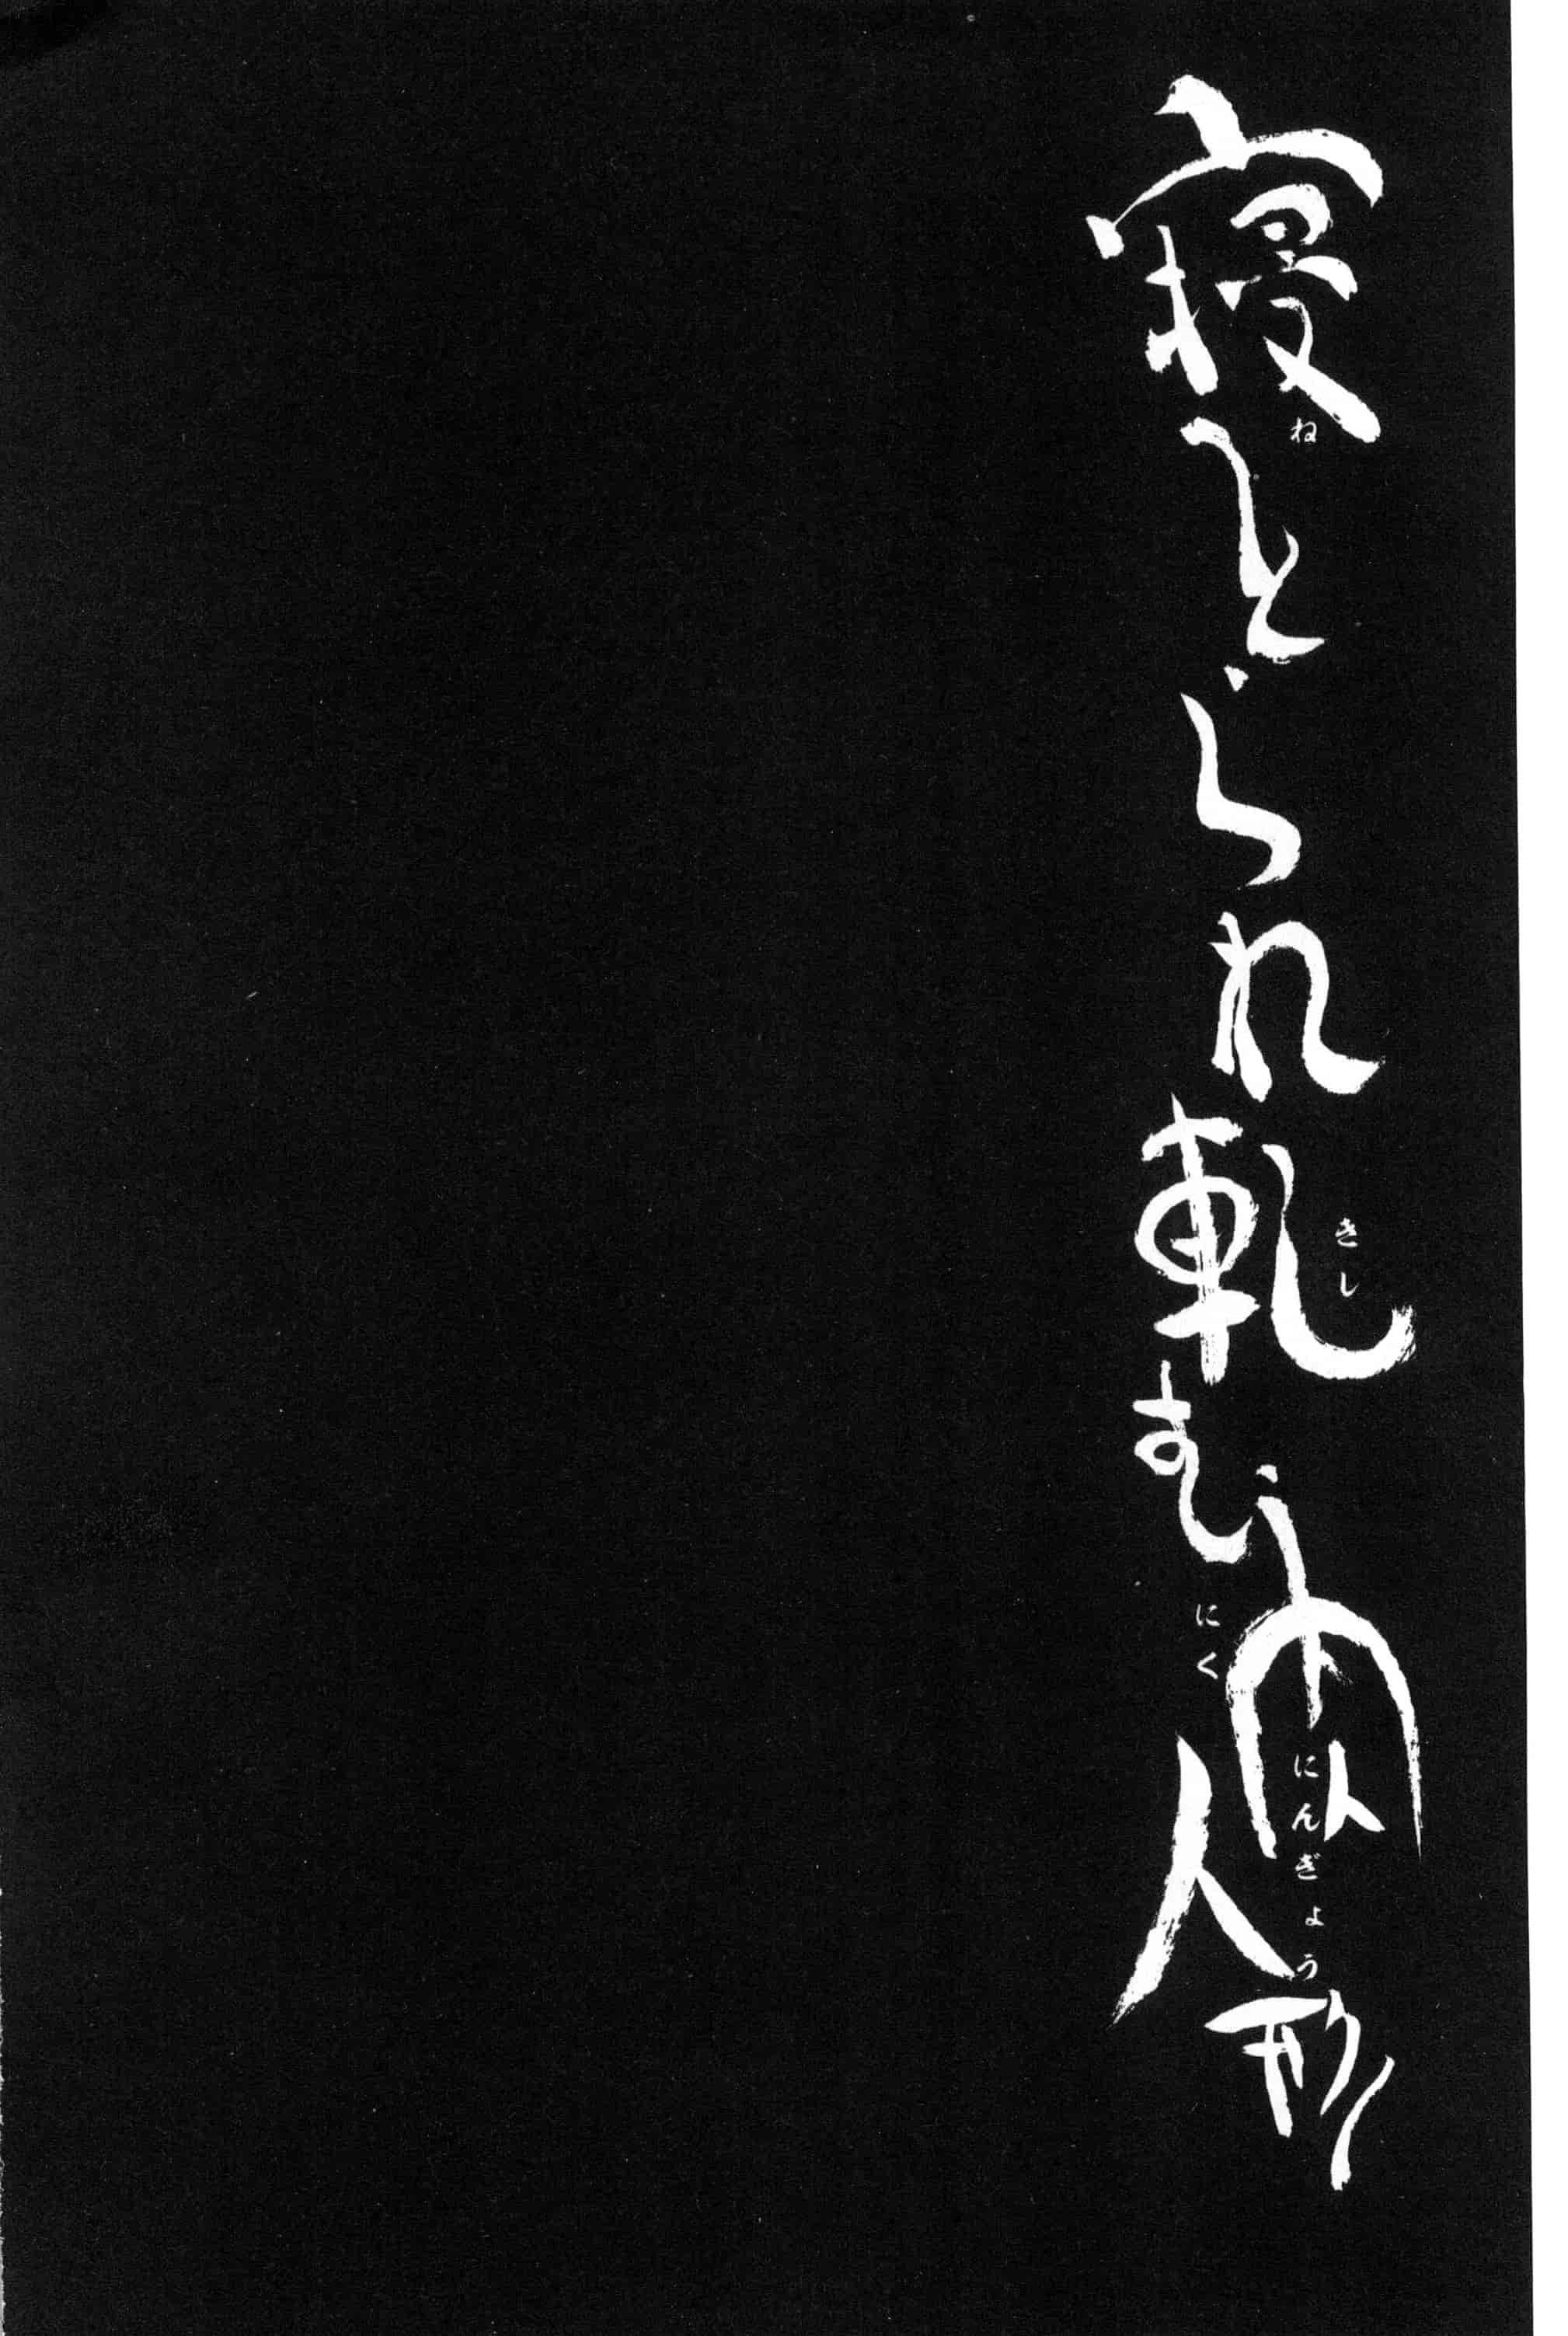 寝とられ軋む肉人形
ね
きし
にく
にんぎょう